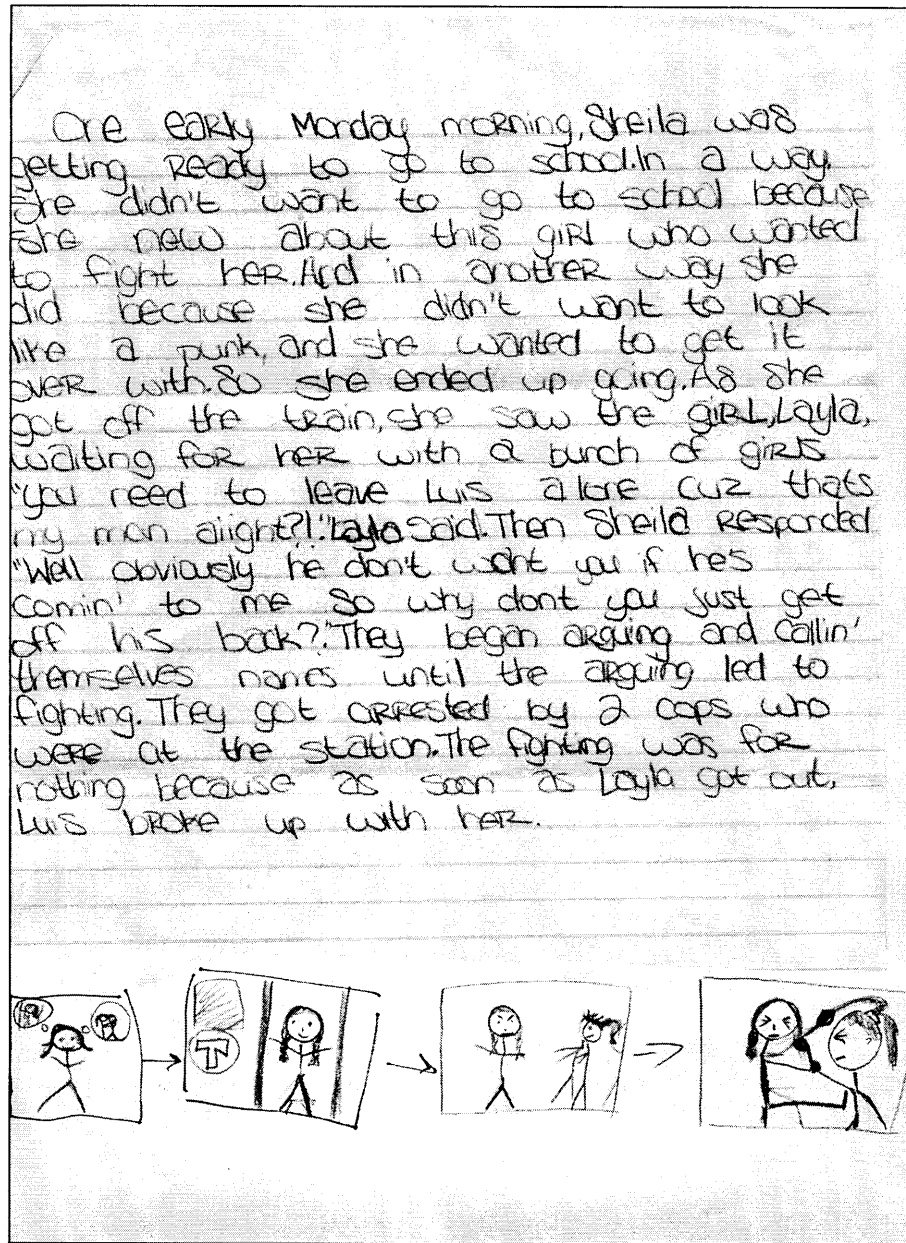 One early Monday morning, Sheila was
getting Ready to go to school. In a way,
She didn't want to go to school because
she new about this girl who wanted
to fight her. And in another way she
did because she didn't want to look
like a punk, and she wanted to get it
over with. So she ended up going. As she
got off the train, she saw the girl, Layla,
waiting for her with a bunch of girls
"You need to leave Luis alone cuz thats
my man aiight?!" Layla Said. Then Sheila Responded
"Well obviously he don't want you if he's
comin' to me so why dont you just get
off his back?" They began arguing and callin'
themselves names until the arguing led to
fighting. They got arrested by 2 cops who
were at the station. The fighting was for
nothing because as soon as Layla got out,
Luis broke up with her.
T